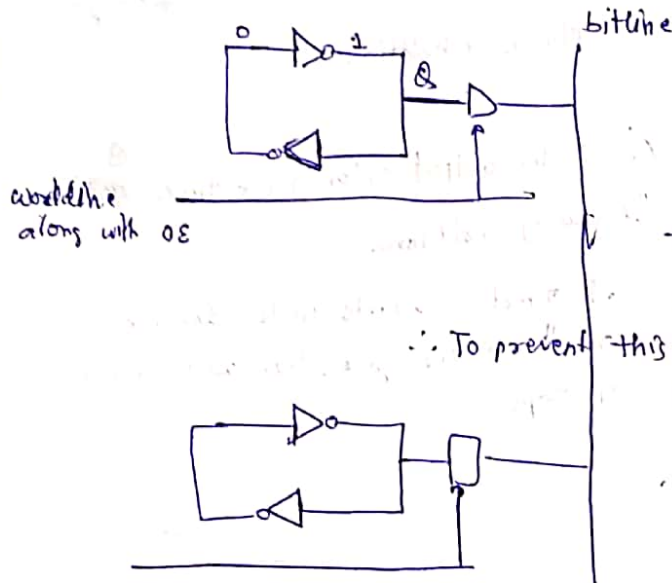 bitline
0
1
Q
wordline
along with OE
∴ To prevent this